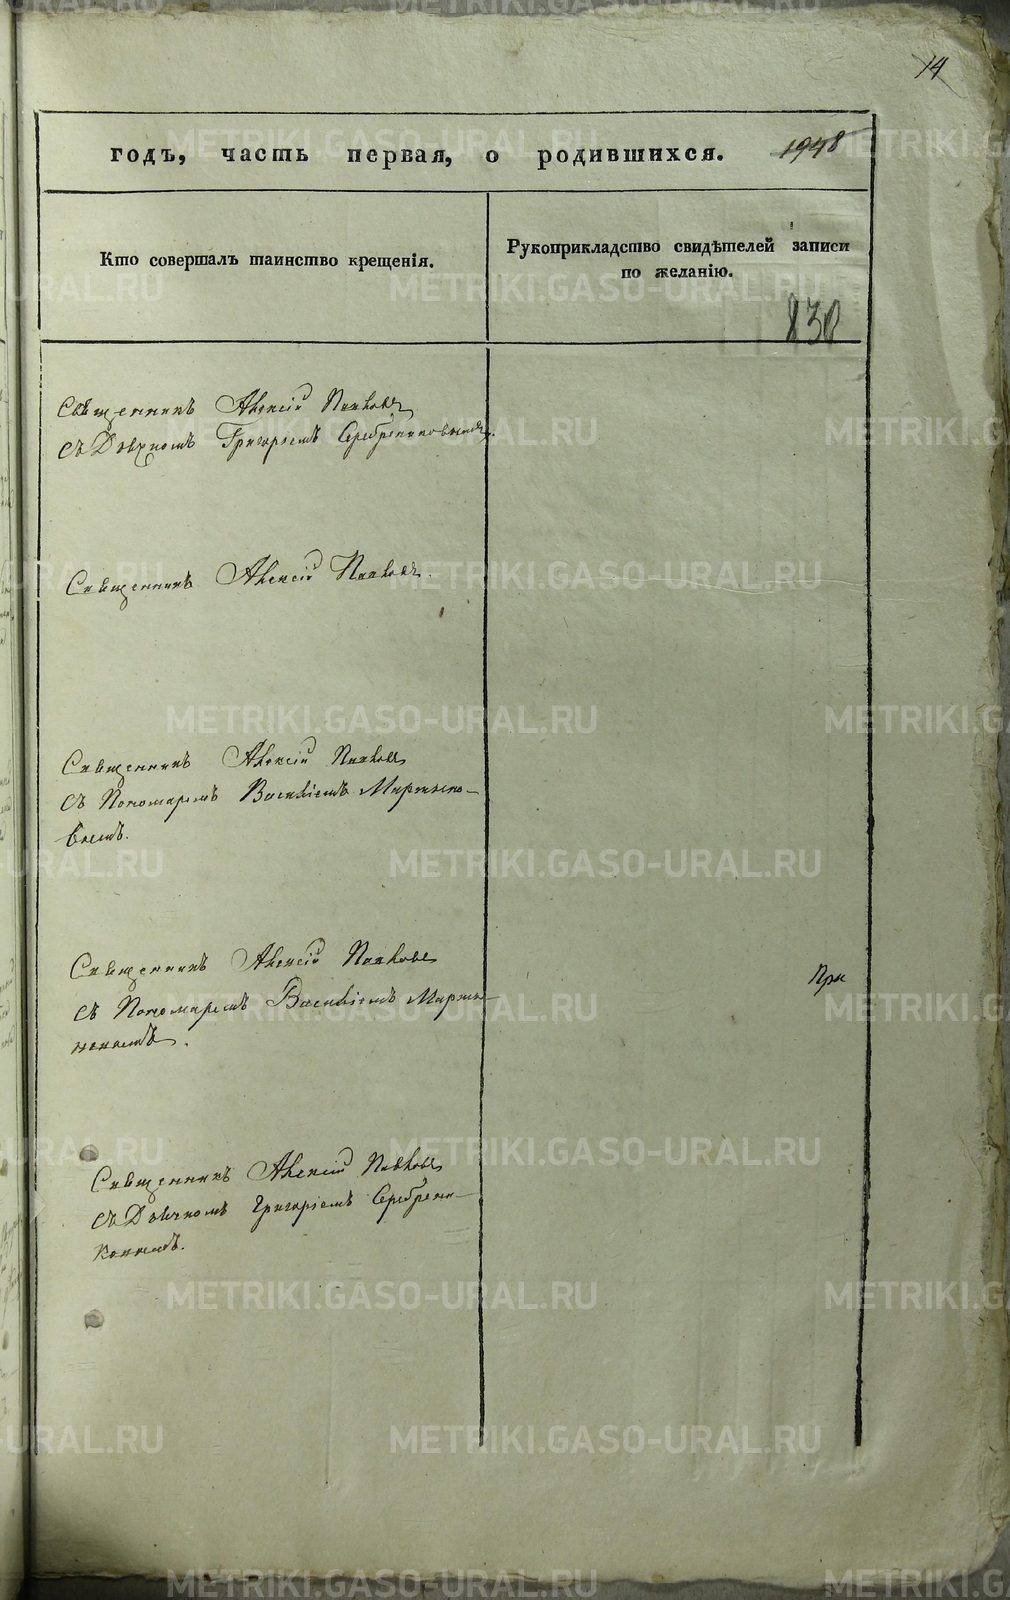 14
годъ, часть первая, о родившихся. 1948
Кто совершалъ таинство крещенія.
Рукоприкладство свидѣтелей записи
по желанію.
838
Священникъ Алексій Поповъ
съ Дьячкомъ Григоріемъ Серебрениковымъ.
Священникъ Алексій Поповъ.
Священникъ Алексій Поповъ
съ Пономаремъ Василіемъ Мартыно-
вымъ.
Священникъ Алексій Поповъ
съ Пономаремъ Василіемъ Марты-
новымъ.
При
Священникъ Алексій Поповъ
съ Дьячкомъ Григоріемъ Серебрени-
ковымъ.
METRIKI.GASO-URAL.RU